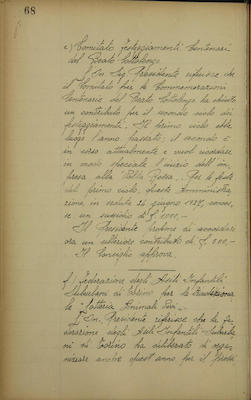 68
e) Comitato festeggiamenti Centenari
del Beato Cottolengo
L'On. Sig. Presidente riferisce che
il Comitato per le Commemorazioni
Centenarie del Beato Cottolengo ha chiesto
un contributo per il secondo ciclo dei
festeggiamenti. Il primo ciclo ebbe
luogo l'anno passato; il secondo è
in corso attualmente e vuol ricordare
in modo speciale l'inizio dell'im
presa alla Volta Rossa. Per le feste
del primo ciclo, questa Amministra
zione in seduta 26 giugno 1928, conces
se un sussidio di £. 1000.-
Il Presidente propone di concedere
ora un ulteriore contributo di £. 500.-
Il Consiglio approva.
f) Federazione degli Asili Infantili
Suburbani di Torino per la
"Lotteria
L'On. Presidente riferisce che la Fe
derazione degli Asili Infantili Suburba
ni di Torino ha deliberato di orga
nizzare anche quest'anno, per il